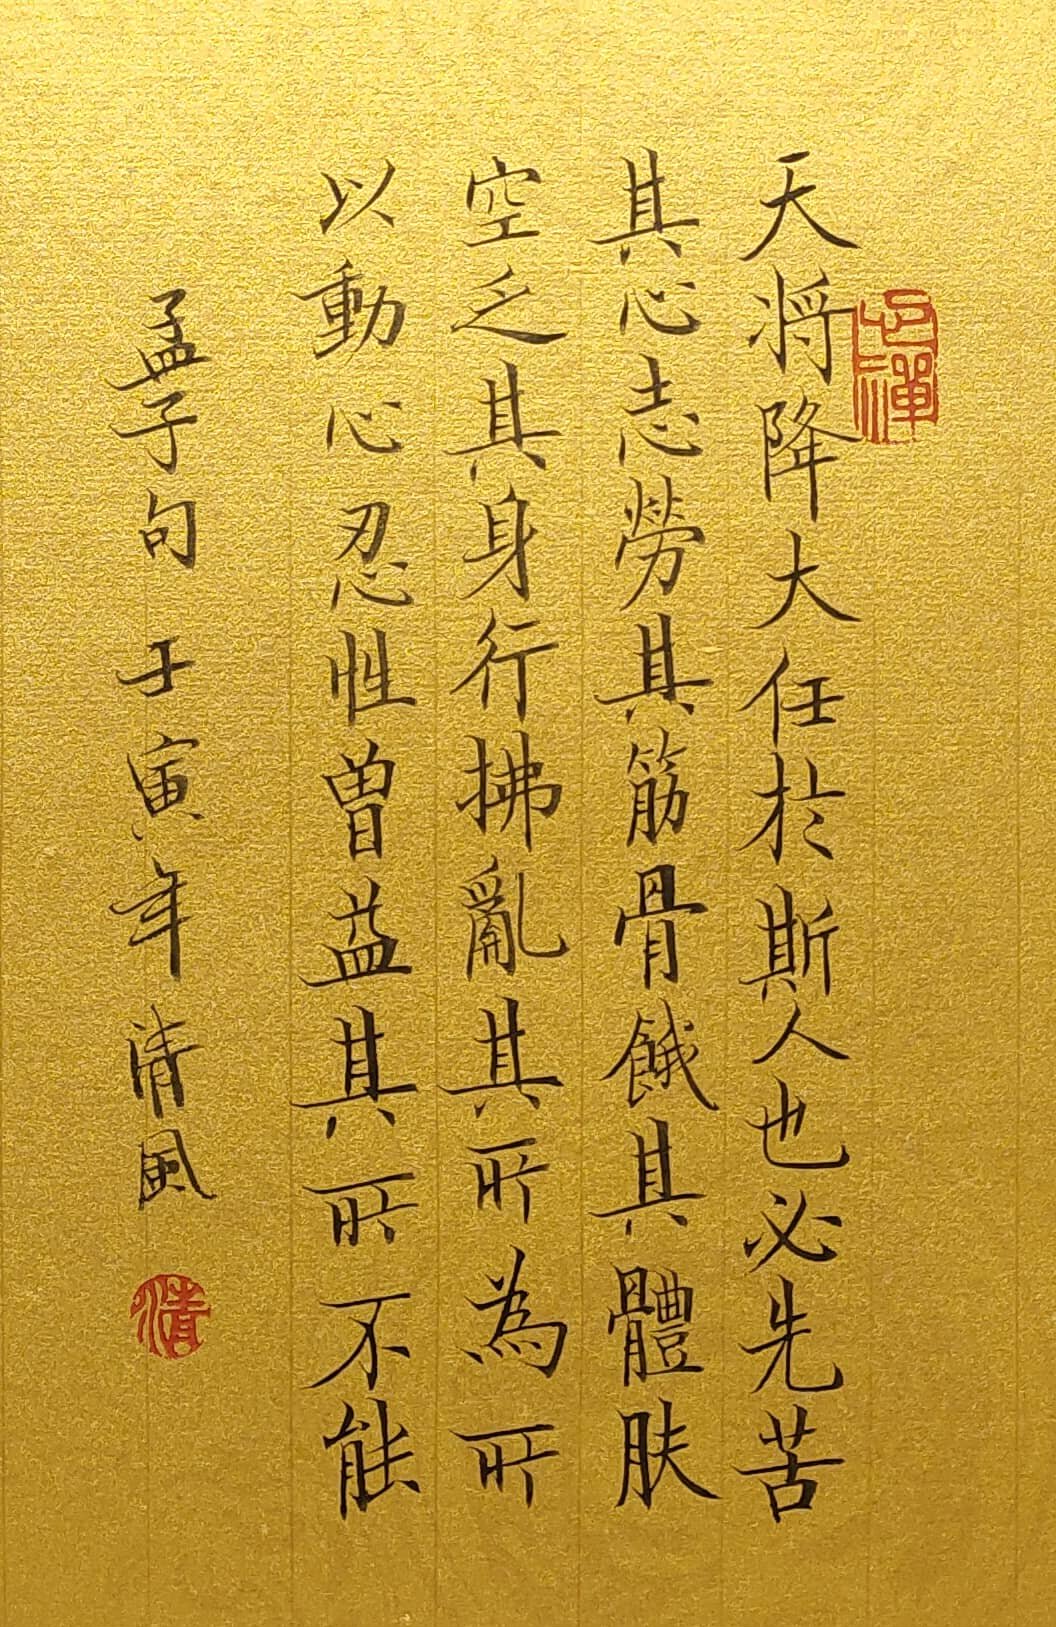 天将降大任於斯人也必先苦
其心志勞其筋骨餓其體膚
空乏其身行拂亂其所為所
以動心忍性曾益其所不能
孟子句 壬寅年 清風
清